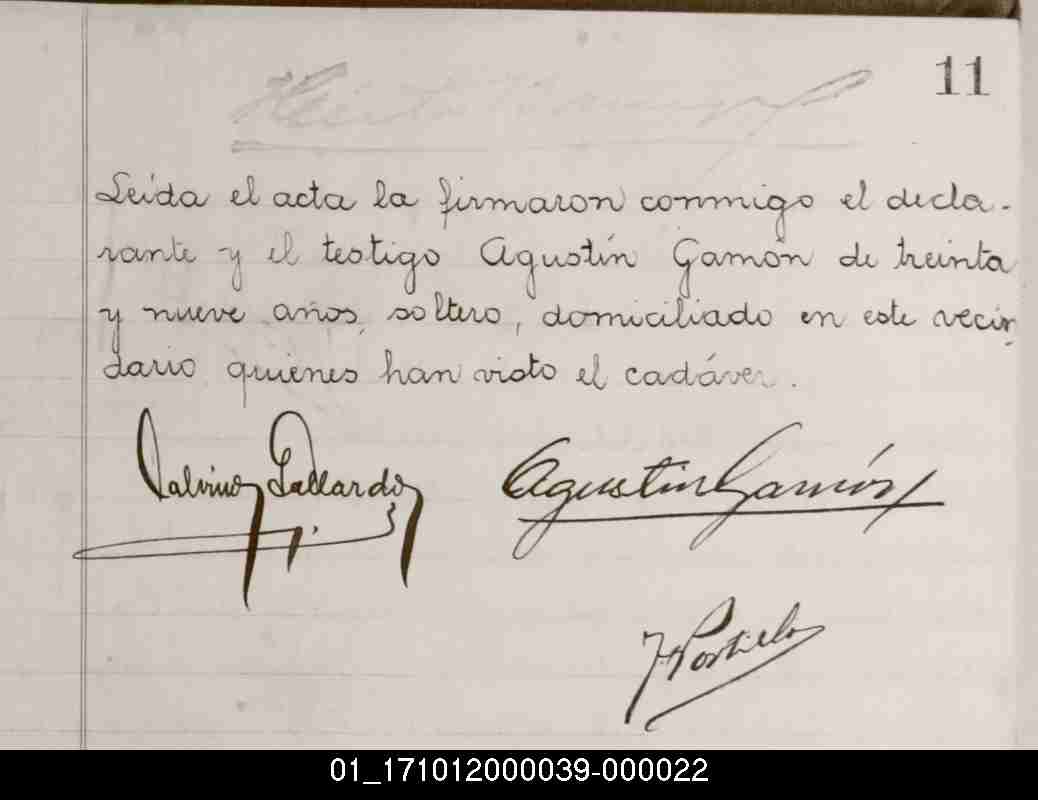 11
Leída el acta la firmaron conmigo el decla-
rante y el testigo Agustín Gamón de treinta
y nueve años, soltero, domiciliado en este vecin
dario quienes han visto el cadáver.
Gallardo Agustin Gamón
Portiela
01_171012000039-000022